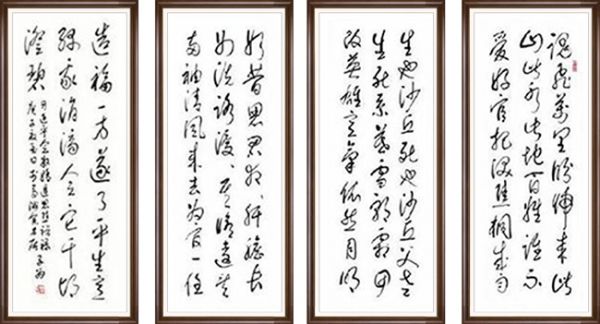 魂飛萬里盼歸來此
水此山此地百姓誰不
愛好官把淚焦桐成雨
生也沙丘死也沙丘父老
生死系暮雪朝霜毋
改英雄意氣依然月明
如昔思君夜夜肝膽長
如洗路漫漫其修遠矣
兩袖清風來去為官一任
造福一方遂了平生意
綠我涓滴會它千頃
澄碧